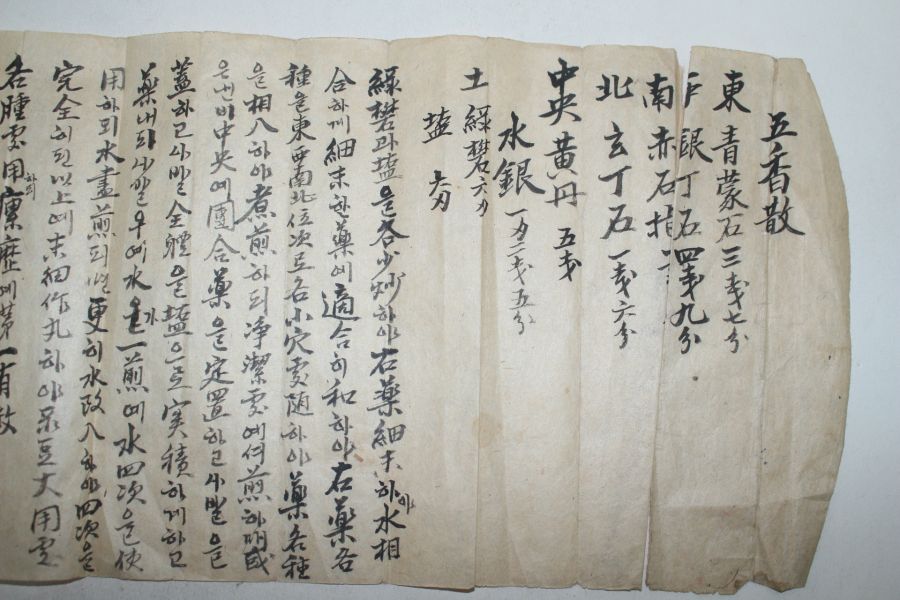 五香散
東 青蒙石 三戔七分
銀丁石 四戔九分
南 赤石指
北 玄丁石 一戔六分
中央 黃丹 五戔
水銀 一兩二戔五分
土 綠礬 六兩
塩 六兩
綠礬과 塩을 各少炒하야 右藥細末하야 水相
合하게 細末한 藥에 適合히 和하야 右藥各
種을 東西南北位次로 各小穴處 随하야 藥各種
을 相入하야 煮煎하되 净潔處에서 煎하며 或
은 냄비 中央에 團合藥을 定置하고 사발을
蓋하고 사발 全體을 塩으로 実積하게 하고
藥내되 사발 우에 水을 一煎에 水四次을 使
用하되 水盡煎되면 更히 水改入하야 四次을
完全히 된 以上에 末細作丸하야 菉豆大用
各腫處用하되 第一有效